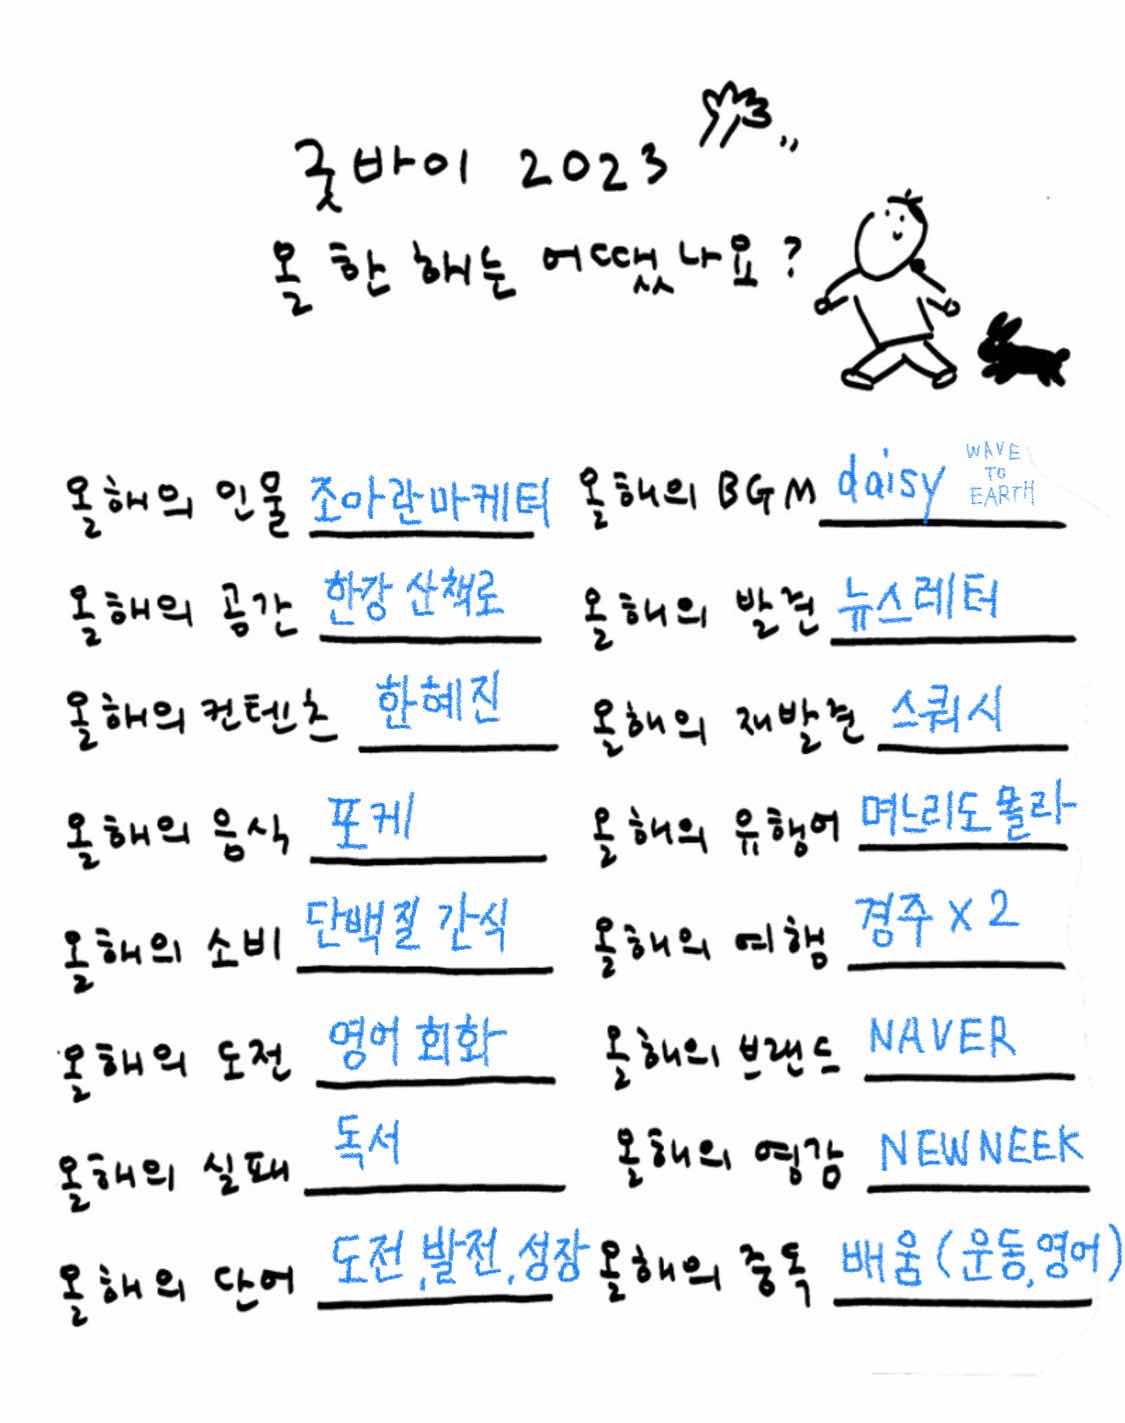 굿바이 2023
올 한 해는 어땠나요?
올해의 인물 조아란마케터
올해의 BGM daisy WAVE TO EARTH
올해의 공간 한강 산책로
올해의 발견 뉴스레터
올해의 컨텐츠 한혜진
올해의 재발견 스쿼시
올해의 음식 포케
올해의 유행어 며느리도 몰라
올해의 소비 단백질 간식
올해의 여행 경주 X 2
올해의 도전 영어 회화
올해의 브랜드 NAVER
올해의 실패 독서
올해의 영감 NEWNEEK
올해의 단어 도전, 발전, 성장
올해의 중독 배움 (운동, 영어)